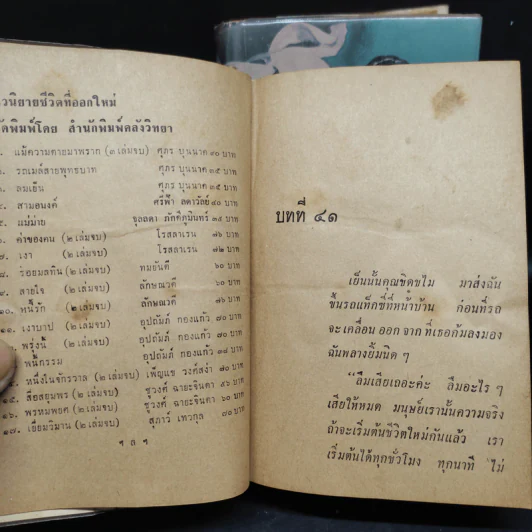 วนิยายชีวิตที่ออกใหม่
ดพิมพ์โดย สำนักพิมพ์คลังวิทยา
๑. แม้ความตายมาพราก (๓ เล่มจบ) ศุภร บุนนาค ๙๐ บาท
๒. รถเมล์สายพุทธบาท ศุภร บุนนาค ๓๕ บาท
๓. ลมเย็น ศุภร บุนนาค ๓๕ บาท
๔. สามอนงค์ ศรีฟ้า ลดาวัลย์ ๔๐ บาท
๕. แม่ม่าย ชุลลดา ภักดีภูมินทร์ ๓๕ บาท
๖. ค่าของคน (๒ เล่มจบ) โรสลาเรน ๗๖ บาท
๗. เงา (๒ เล่มจบ) โรสลาเรน ๗๒ บาท
๘. รอยมลทิน (๒ เล่มจบ) ทมยันตี ๖๐ บาท
๙. สายใจ (๒ เล่มจบ) ลักษณวดี ๖๐ บาท
๑๐. หนี้รัก (๒ เล่มจบ) ลักษณวดี ๖๐ บาท
๑๑. เงาบาป (๒ เล่มจบ) อุปถัมภ์ กองแก้ว ๗๐ บาท
พรุ่งนี้ (๒ เล่มจบ) อุปถัมภ์ กองแก้ว ๖๐ บาท
พนี้กรรม อุปถัมภ์ กองแก้ว ๓๕ บาท
หนึ่งในจักรวาล (๒ เล่มจบ) เพ็ญแข วงศ์สง่า ๗๐ บาท
๑๕. สื่อสลุมพร (๒ เล่มจบ) ชูวงศ์ ฉายะจินดา ๕๖ บาท
๑๖. พรหมพยศ (๒ เล่มจบ) ชูวงศ์ ฉายะจินดา ๖๐ บาท
๑๗. เยี่ยมวิมาน (๒ เล่มจบ) สุภาว์ เทวกุล ๗๐ บาท
ฯ ล ฯ
บทที่ ๔๑
เย็นนั้นคุณขิดขไม มาส่งฉัน
ขึ้นรถแท็กซี่ที่หน้าบ้าน ก่อนที่รถ
จะเคลื่อนออกจากที่เธอก้มลงมอง
ฉันพลางยิ้มนิด ๆ
"ลืมเสียเถอะค่ะ ลืมอะไร ๆ
เสียให้หมด มนุษย์เรานั้นความจริง
ถ้าจะเริ่มต้นชีวิตใหม่กันแล้ว เรา
เริ่มต้นได้ทุกชั่วโมง ทุกนาที ไม่